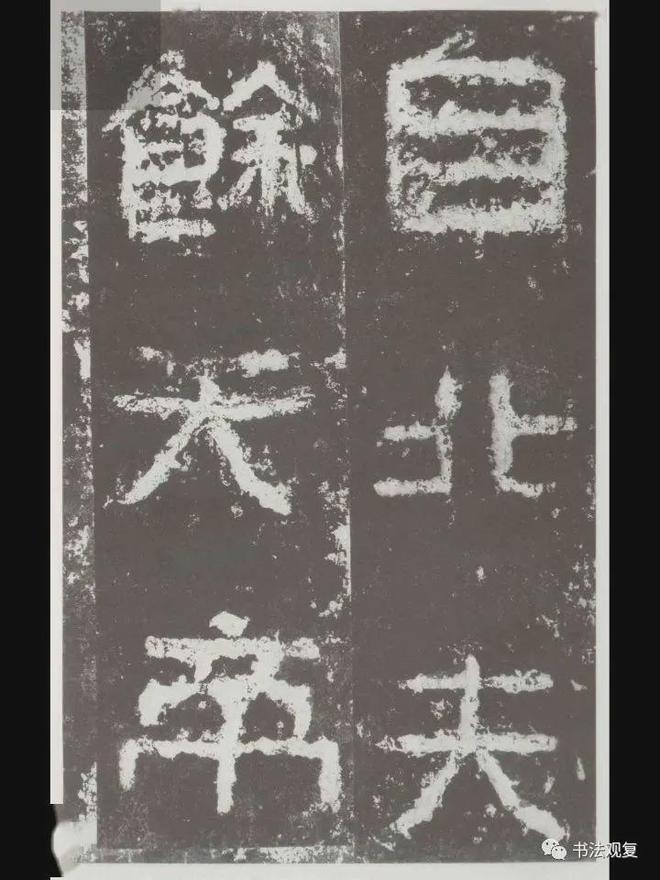 自北夫
餘天帝
书法观复